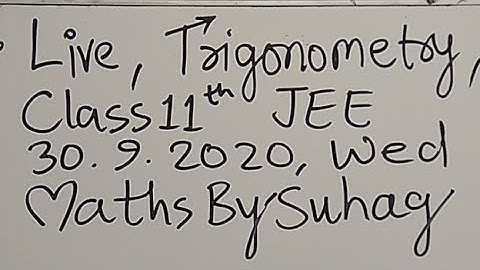 Live, Trigonometry,
Class 11th JEE
30.9.2020, Wed
Maths By Suhag